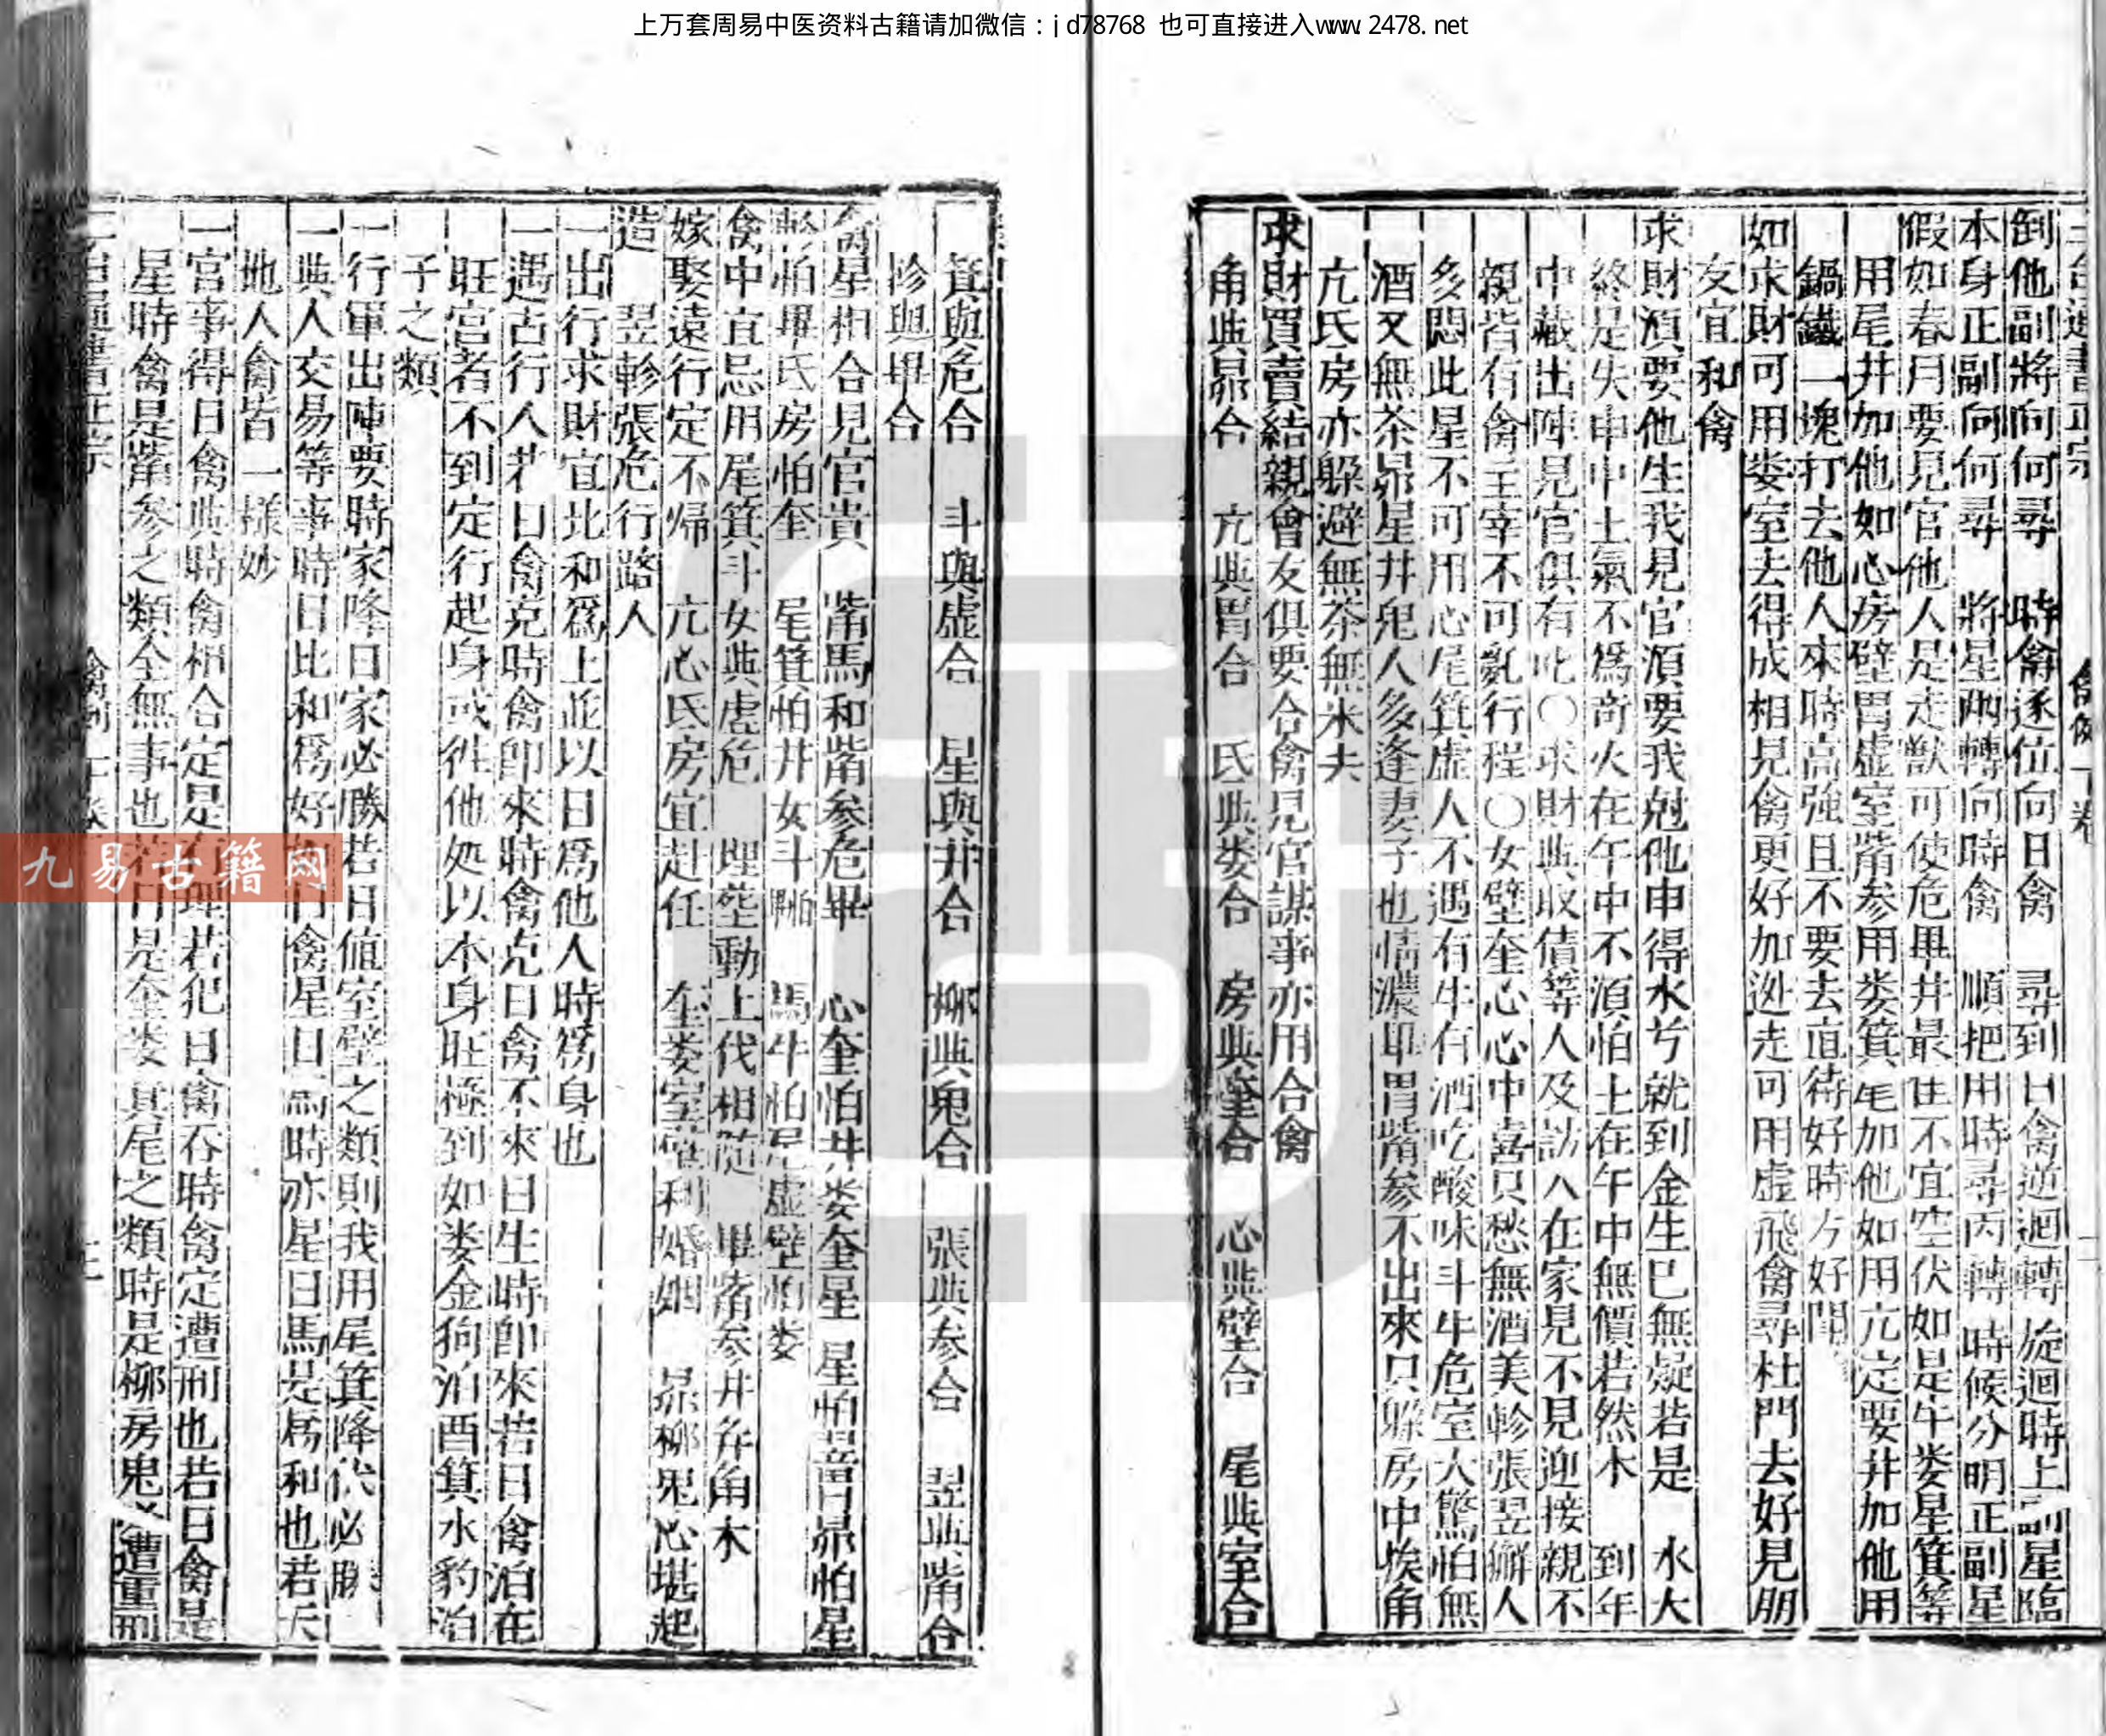 上万套周易中医资料古籍请加微信：jd78768 也可直接进入www.2478.net
倒他副將向何尋　時禽逐位向日禽　尋到日禽逆迴轉　旋迴時上副星臨
本身正副向何尋　將星兩轉向時禽　順把用時尋丙轉　時候分明正副星
假如春月要見官他人是走獸可使危畢井最佳不宜空伏如是牛婁星箕等
用尾井加他如心房壁胃虛室觜參用婁箕尾加他如用亢定要井加他用
鍋鐵一塊打去他人來時高強且不要去直待好時方好
如求財可用婁室去得成相見禽更好加迯走可用虛飛禽尋杜門去好見朋
友宜和禽
求財湏要他生我見官湏要我尅他申得水兮就到金生巳無疑若是　水大
終是失申中土氣不爲奇火在午中不湏怕土在午中無價若然木　到年
中藏出陣見官俱有吡〇求財與収債等人及訪人在家見不見迎接親不
親皆有禽主宰不可亂行程〇女壁奎心心中喜只愁無酒美軫張翌獬人
多悶此星不可用心尾箕虛人不遇有牛有酒吃酸味斗牛危室大驚怕無
酒又無茶昴星井鬼人多逢妻子也情濃耶胃觜參不出來只躲房中矦角
亢氐房亦躲避無茶無米夫
求財買賣結親會友俱要合禽見官謀事亦用合禽
角與昴合　亢與胃合　氐與婁合　房與奎合　心與壁合　尾與室合
箕與危合　斗與虛合　星與井合　柳與鬼合　張與參合　翌與觜合
軫與畢合
禽星相合見官貴　觜馬和觜參危畢　心奎怕井婁奎星　星怕昴怕星
怕畢氐房怕奎　尾箕怕井女斗　馬牛怕尾虛壁怕婁
禽中宜忌用尾箕斗女與虛危　埋塟動土伐相隨　畢觜參井弁角木
嫁娶遠行定不歸　亢心氐房宜赴任　奎婁室當利婚姻　昴柳鬼心堪起
造　翌軫張危行路人
一出行求財宜比和爲上並以日爲他人時爲身也
一遇占行人若日禽克時禽卽來時禽克日禽不來日生時卽來若日禽泊在
旺宫者不到定行起身或徃他処以本身旺極到如婁金狗泊酉箕水豹泊
子之類
一行軍出陣要時家降日家必勝若日値室壁之類則我用尾箕降伏必勝
一與人交易等事時日比和爲好日禽星日馬時亦星日馬是爲和也若天
地人禽皆一様妙
一官事得日禽與時禽相合定是理若犯日禽吞時禽定遭刑也若日禽是
星時禽是觜參之類全無事也若日是奎婁箕尾之類時是柳房鬼必遭重刑
九易古籍网